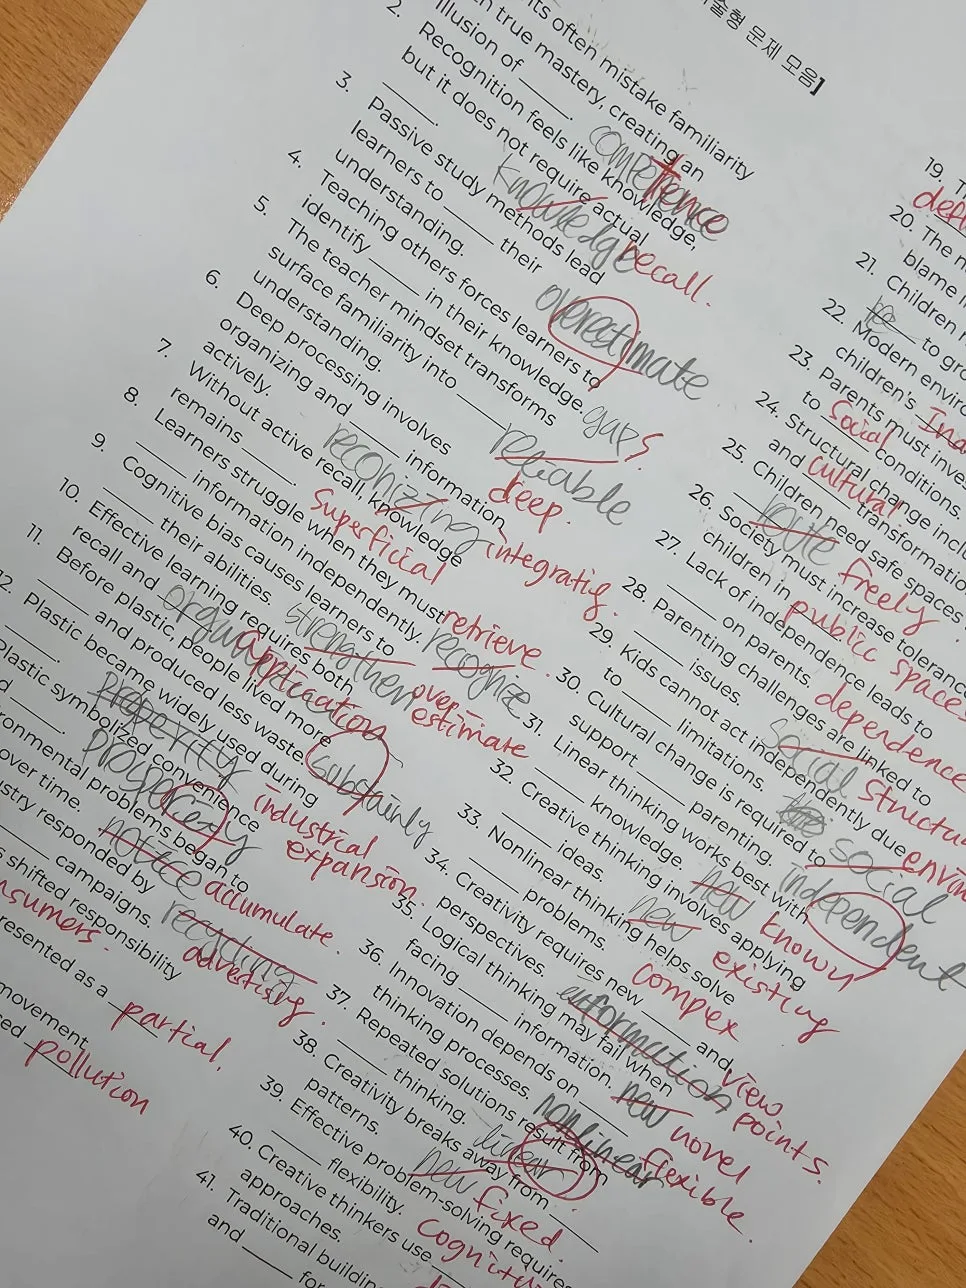 술형 문제 모음]
nts often mistake familiarity
n true mastery, creating an
illusion of ______. competence
2. Recognition feels like knowledge,
but it does not require actual
______. knowledge recall.
3. Passive study methods lead
learners to ______ their
understanding. overestimate
4. Teaching others forces learners to
identify ______ in their knowledge. gaps
5. The teacher mindset transforms
surface familiarity into ______
understanding. reliable deep.
6. Deep processing involves
organizing and ______ information
actively. recognizing integratig.
7. Without active recall, knowledge
remains ______. superficial
8. Learners struggle when they must
______ information independently. recognize retrieve
9. Cognitive bias causes learners to
______ their abilities. strengthen over-
estimate
10. Effective learning requires both
recall and ______. application
11. Before plastic, people lived more
______ and produced less waste.
12. Plastic became widely used during
______. industrial
expansion.
Plastic symbolized convenience
d ______. prosperity
ronmental problems began to
over time. notice accumulate.
ustry responded by
______ campaigns. recycling advertisig.
s shifted responsibility
nsumers.
resented as a ______ partial.
movement
sed ______ pollution
19. T
20. The n
blame i
21. Children
22. Modern enviro
children's Ind
23. Parents must inves
to ______ conditions. Social
24. Structural change inclu
and ______ transformatio cultural
25. Children need safe spaces
______ freely
26. Society must increase tolerance
children in ______ public spaces
27. Lack of independence leads to
______ on parents. dependence
28. Parenting challenges are linked to
______ issues. social structu
29. Kids cannot act independently due
to ______ limitations. environ
30. Cultural change is required to
support ______ parenting. independent
31. Linear thinking works best with
______ knowledge. new known
32. Creative thinking involves applying
______ ideas. new existing
33. Nonlinear thinking helps solve
______ problems. complex
34. Creativity requires new ______ and
perspectives. view
points.
35. Logical thinking may fail when
facing ______ information. new novel
36. Innovation depends on ______
thinking processes. nonlinear flexible.
37. Repeated solutions result from
______ thinking. linear
38. Creativity breaks away from ______
patterns. new fixed.
39. Effective problem-solving requires
______ flexibility. cognitiv
40. Creative thinkers use ______
approaches.
41. Traditional building
and ______ for